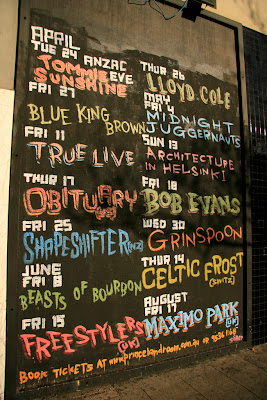 APRIL
TUE 24 ANZAC EVE
TOMMIE SUNSHINE
FRI 27
BLUE KING BROWN
FRI 11
TRUE LIVE
THUR 17
OBITUARY
FRI 25
SHAPESHIFTER (NZ)
JUNE
FRI 8
BEASTS OF BOURBON
FRI 15
FREESTYLERS (UK)
THUR 26
LLOYD COLE
MAY
FRI 4
MIDNIGHT
JUGGERNAUTS
SUN 13
ARCHITECTURE
IN HELSINKI
FRI 18
BOB EVANS
WED 30
GRINSPOON
THUR 14
CELTIC FROST
(SWITZ)
AUGUST
FRI 17
MAXIMO PARK (UK)
BOOK TICKETS AT www.princebandroom.com.au OR 9536 1168